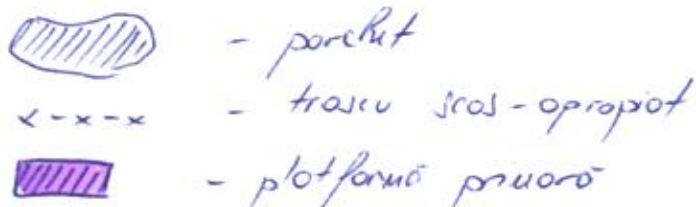 - parchet
- traseu scos-apropiat
- platformă primară